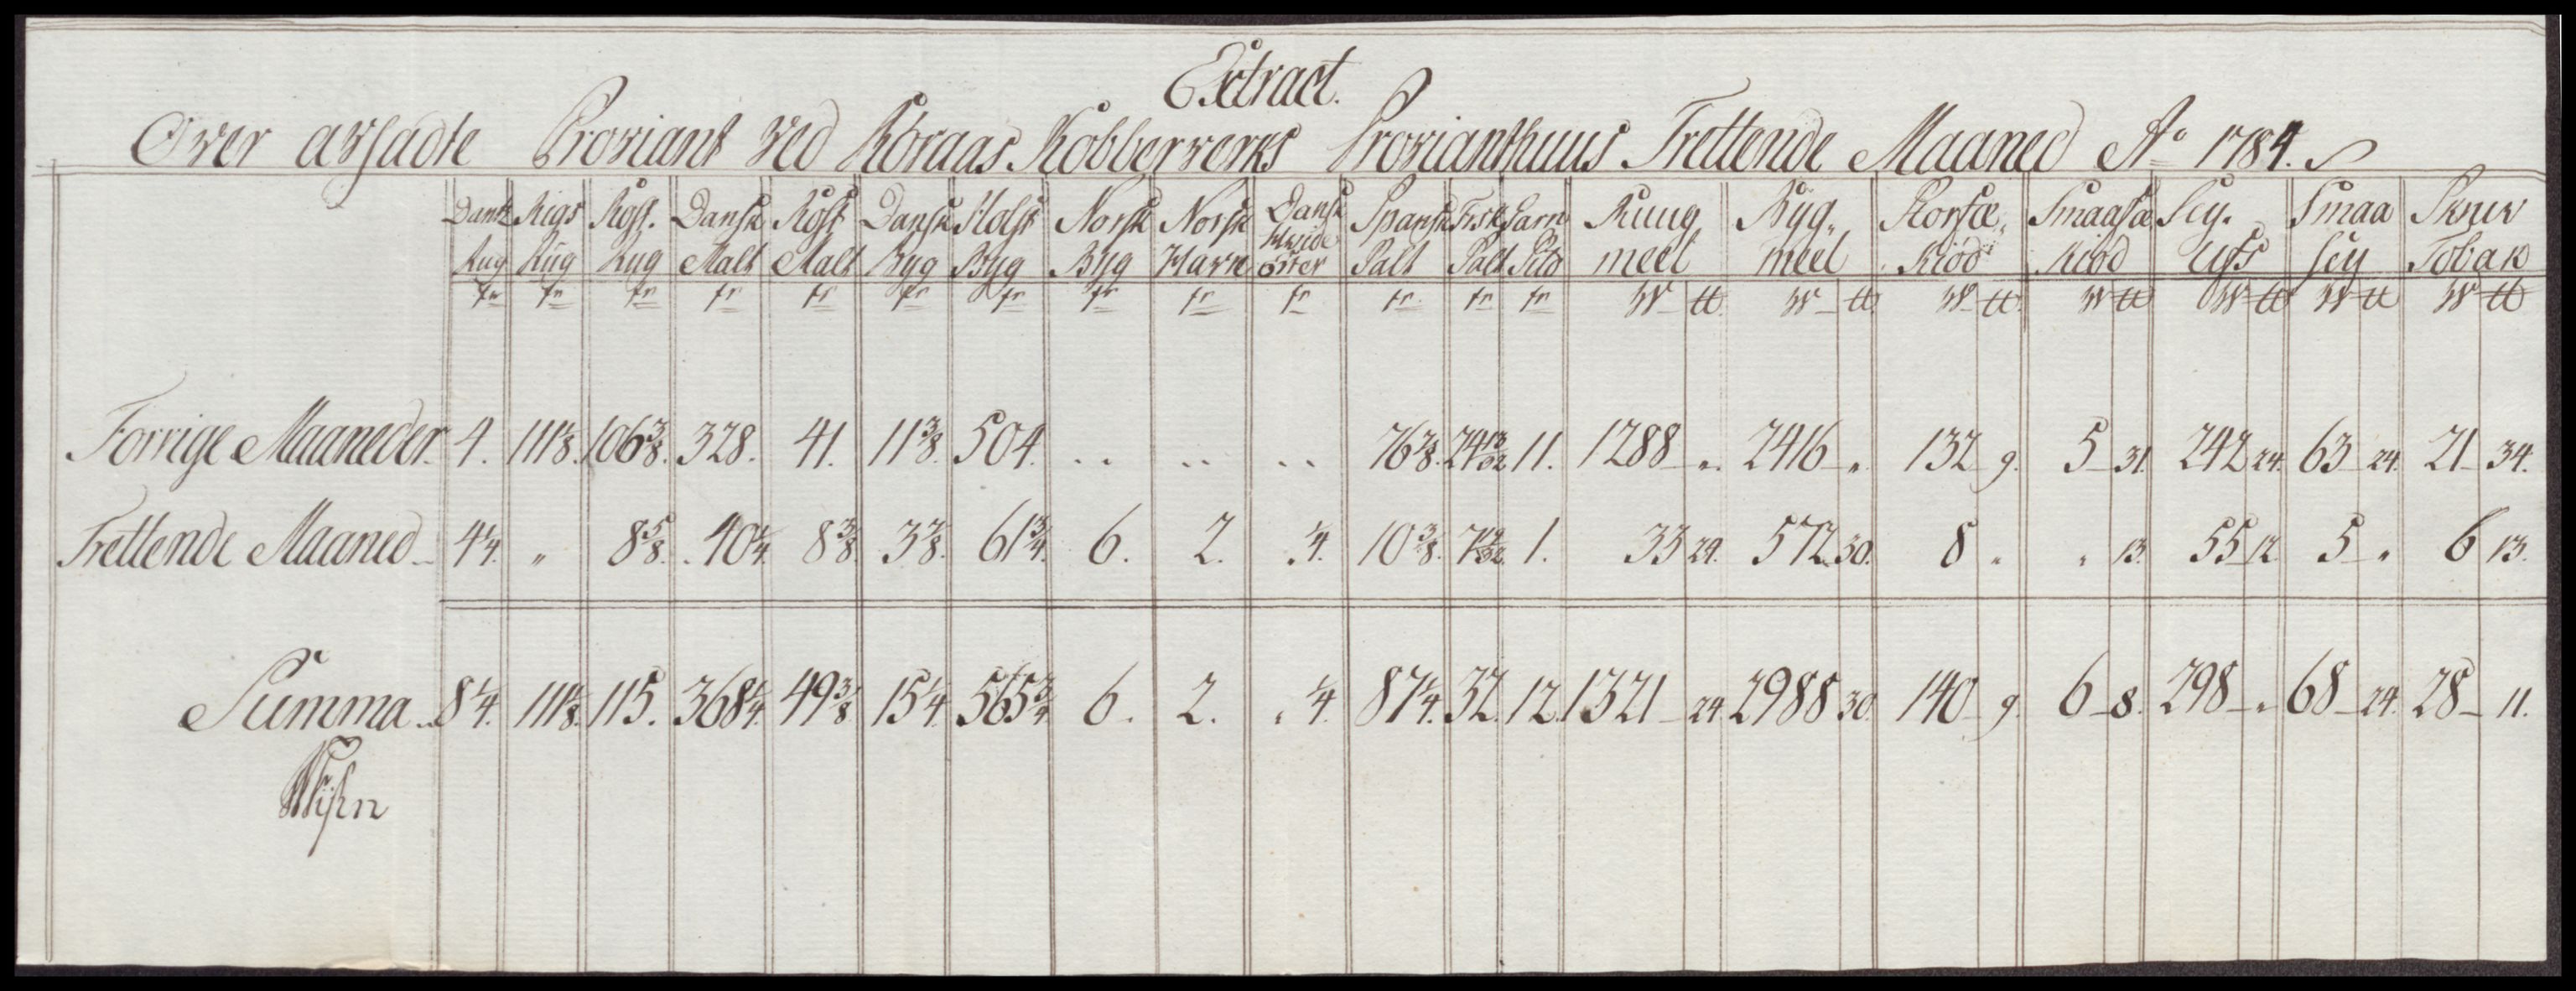 Extract.
Over afsadte Proviant ved Röraas Kobberverks Provianthuus Trettende Maaned Ao 1784.
Dansk Rigs Rost. Dansk Rost Dansk Holst Norsk Norsk Dansk Spansk Fransk Ruug Byg Smaa Skruv
Rug Rug Rug Malt Malt Byg Byg Byg Havre Salt Salt meel meel Kiöd Kiöd Sey Tobak
tr tr tr tr tr tr tr tr tr tr tr tr tr W ℔ W ℔ W ℔ W ℔ W ℔ W ℔ W ℔
Forrige Maaneder 4. 111 1/8. 106 3/8. 328. 41. 11 3/8. 504. .. .. .. 76 7/8. 24 13/32 11. 1288 „ 2416 „ 132 9. 5 31. 242 24. 63 24. 21 34.
Trettende Maaned 4 1/4. „ 8 5/8. 40 1/4. 8 3/8. 3 7/8. 61 3/4. 6. 2. 1/4. 10 3/8. 7 19/32. 1. 33 24. 572 30. 8 „ „ 13. 55 12. 5 „ 6 13.
Summa 8 1/4. 111 1/8. 115. 368 1/4. 49 3/8 15 1/4. 565 3/4 6. 2. 1/4. 87 1/4. 32. 12. 1321 24. 2988 30. 140 9. 6 8. 298 „ 68 24. 28 11.